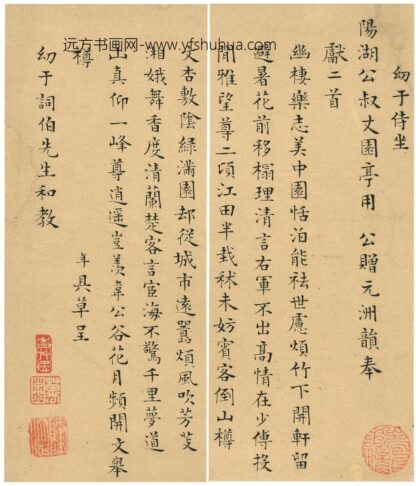 远方书画网 www.yfshuhua.com
幼于侍坐
陽湖公叔丈園亭用 公贈元洲韻奉
獻二首
幽棲樂志美中園恬泊能祛世慮煩竹下開軒留
避暑花前移榻理清言右軍不出高情在少傅投
閒雅望尊二頃江田半栽秫未妨賓客倒山樽
文杏敷陰綠滿園却從城市遠囂煩風吹芳芰
湘娥舞香度清蘭楚客言宦海不驚千里夢道
山真仰一峰尊逍遥豈羨韋公谷花月頻開文舉
樽
幼于詞伯先生和教
具草呈